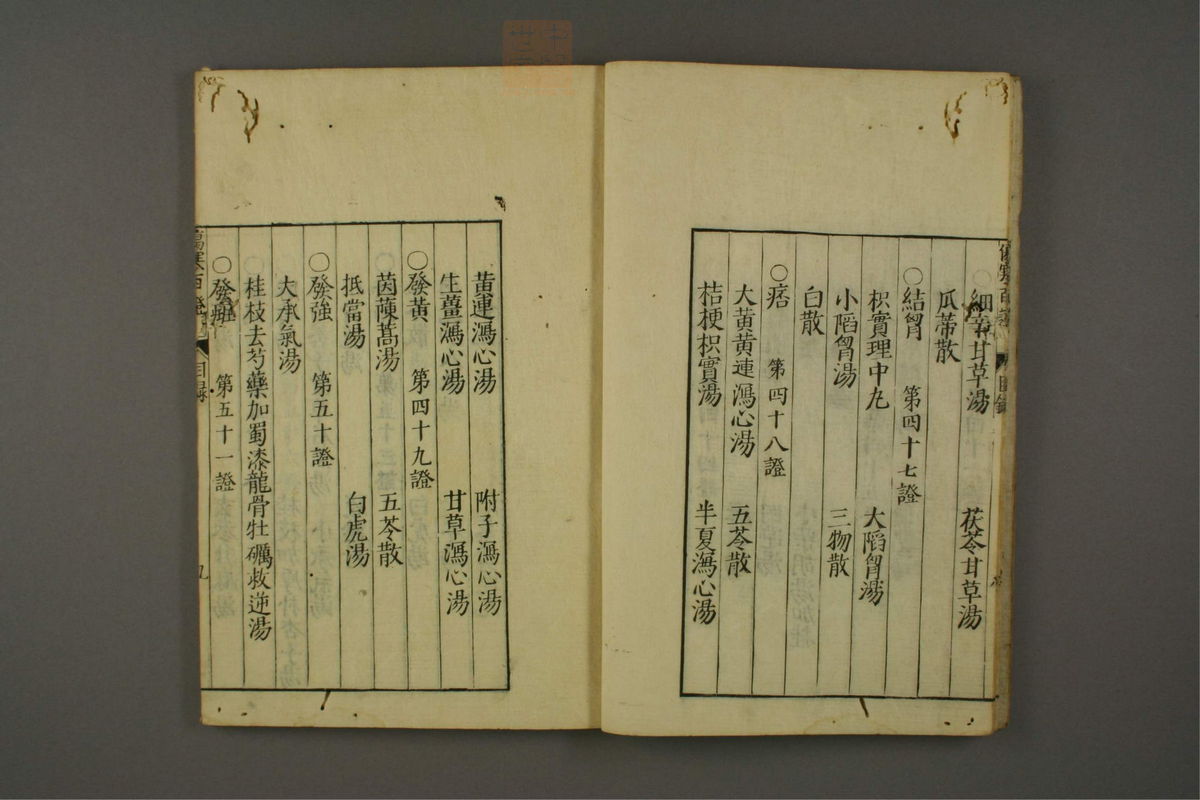 細辛甘草湯　茯苓甘草湯
瓜蒂散
○結胷　第四十七證
枳實理中丸　大陷胷湯
小陷胷湯　三物散
白散
○痞　第四十八證
大黄黄連瀉心湯　五苓散
桔梗枳實湯　半夏瀉心湯
黄連瀉心湯　附子瀉心湯
生薑瀉心湯　甘草瀉心湯
○發黄　第四十九證
茵蔯蒿湯　五苓散
抵當湯　白虎湯
○發強　第五十證
大承氣湯
桂枝去芍藥加蜀漆龍骨牡礪救逆湯
○發　第五十一證
傷寒百證　目録　九